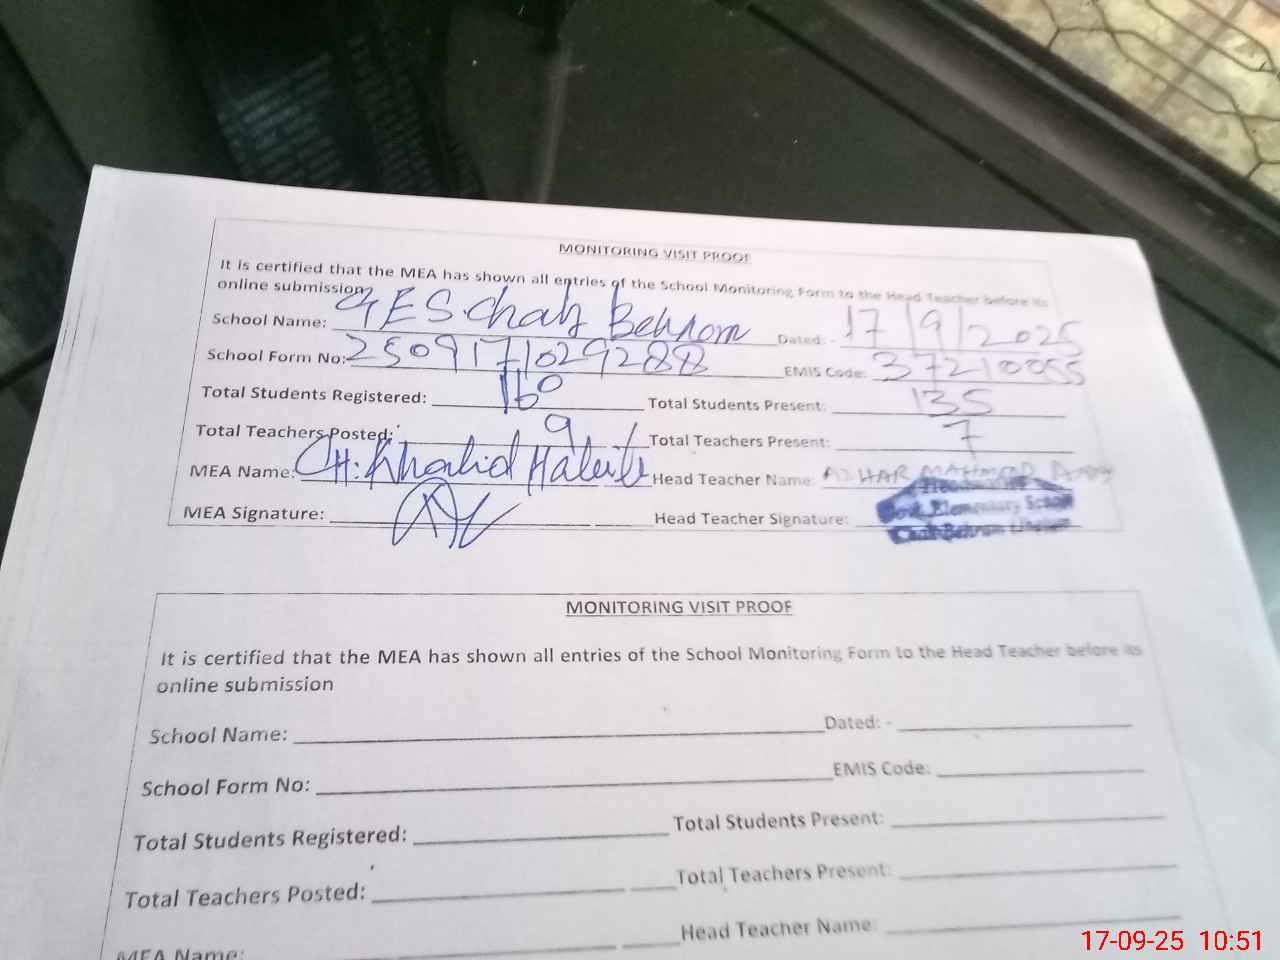 MONITORING VISIT PROOF
It is certified that the MEA has shown all entries of the School Monitoring Form to the Head Teacher before its
online submission
School Name: GES Chah Behram Dated: - 17/9/2025
School Form No: 2509171029288 EMIS Code: 37210055
Total Students Registered: 160 Total Students Present: 135
Total Teachers Posted: 9 Total Teachers Present: 7
MEA Name: CH: Khalid Habib Head Teacher Name: AZHAR MAHMOOD
MEA Signature: Head Teacher Signature:
Govt. Elementary School
Chah Behram
MONITORING VISIT PROOF
It is certified that the MEA has shown all entries of the School Monitoring Form to the Head Teacher before its
online submission
School Name: Dated: -
School Form No: EMIS Code:
Total Students Registered: Total Students Present:
Total Teachers Posted: Total Teachers Present:
MEA Name: Head Teacher Name:
17-09-25 10:51